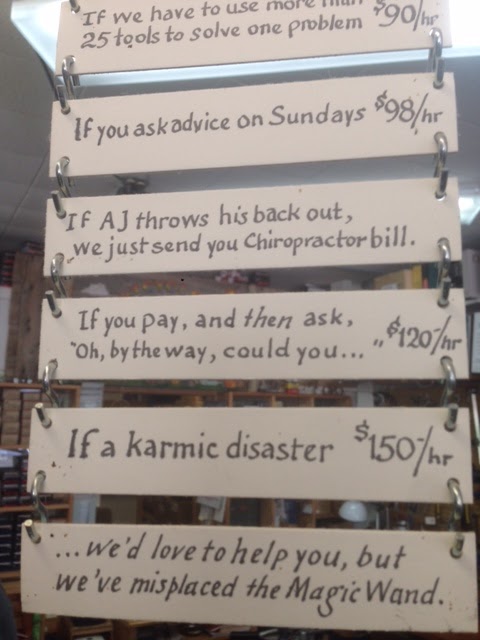 If we have to use more than
25 tools to solve one problem $90/hr
If you ask advice on Sundays $98/hr
If AJ throws his back out,
we just send you Chiropractor bill.
If you pay, and then ask,
"Oh, by the way, could you... " $120/hr
If a karmic disaster $150/hr
...we'd love to help you, but
we've misplaced the Magic Wand.